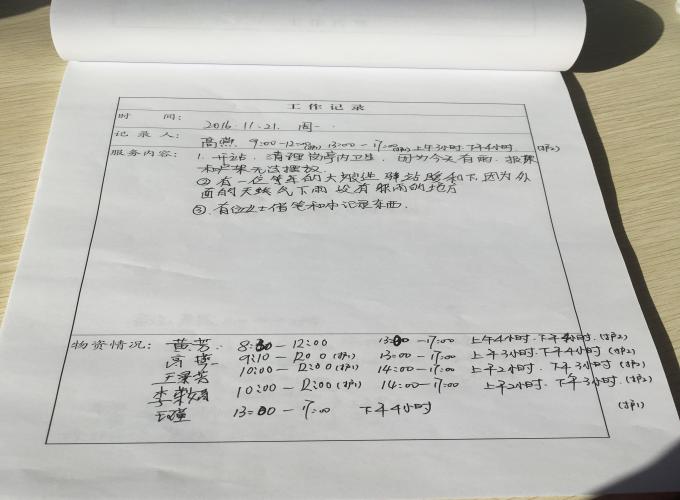 工作记录
时 间: 2016.11.21. 周一
记录人: 高燕 9:00-12:00 13:00-17:00 上午3小时.下午4小时 (护2)
服务内容: 1. 开站. 清理岗亭内卫生. 因为今天有雨. 报架
和户架无法摆放.
② 有一位年的大娘进驿站暖和下.因为外
面的天气下雨 没有躲雨的地方
③. 有位女士借笔和本记录东西.
物资情况: 黄芳. 8:30-12:00 13:00-17:00 上午4小时.下午4小时.(护2)
9:10-12:00(护1) 13:00-17:00 上午3小时.下午4小时(护2)
王景芳 10:00-12:00(护1) 14:00-17:00 上午2小时.下午3小时.(护2)
李 10:00-12:00(护1) 14:00-17:00 上午2小时.下午3小时(护2)
13:00-17:00 下午4小时 (护1)